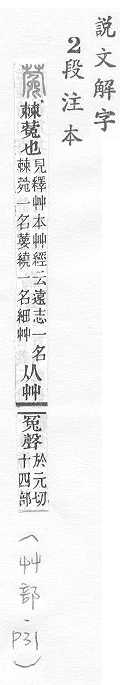 說文解字
2段注本
蒬 棘蒬也 見釋艸本艸經云遠志一名
棘菀一名葽繞一名細艸 从艸
冤聲 於元切
十四部
(艸部.P31)